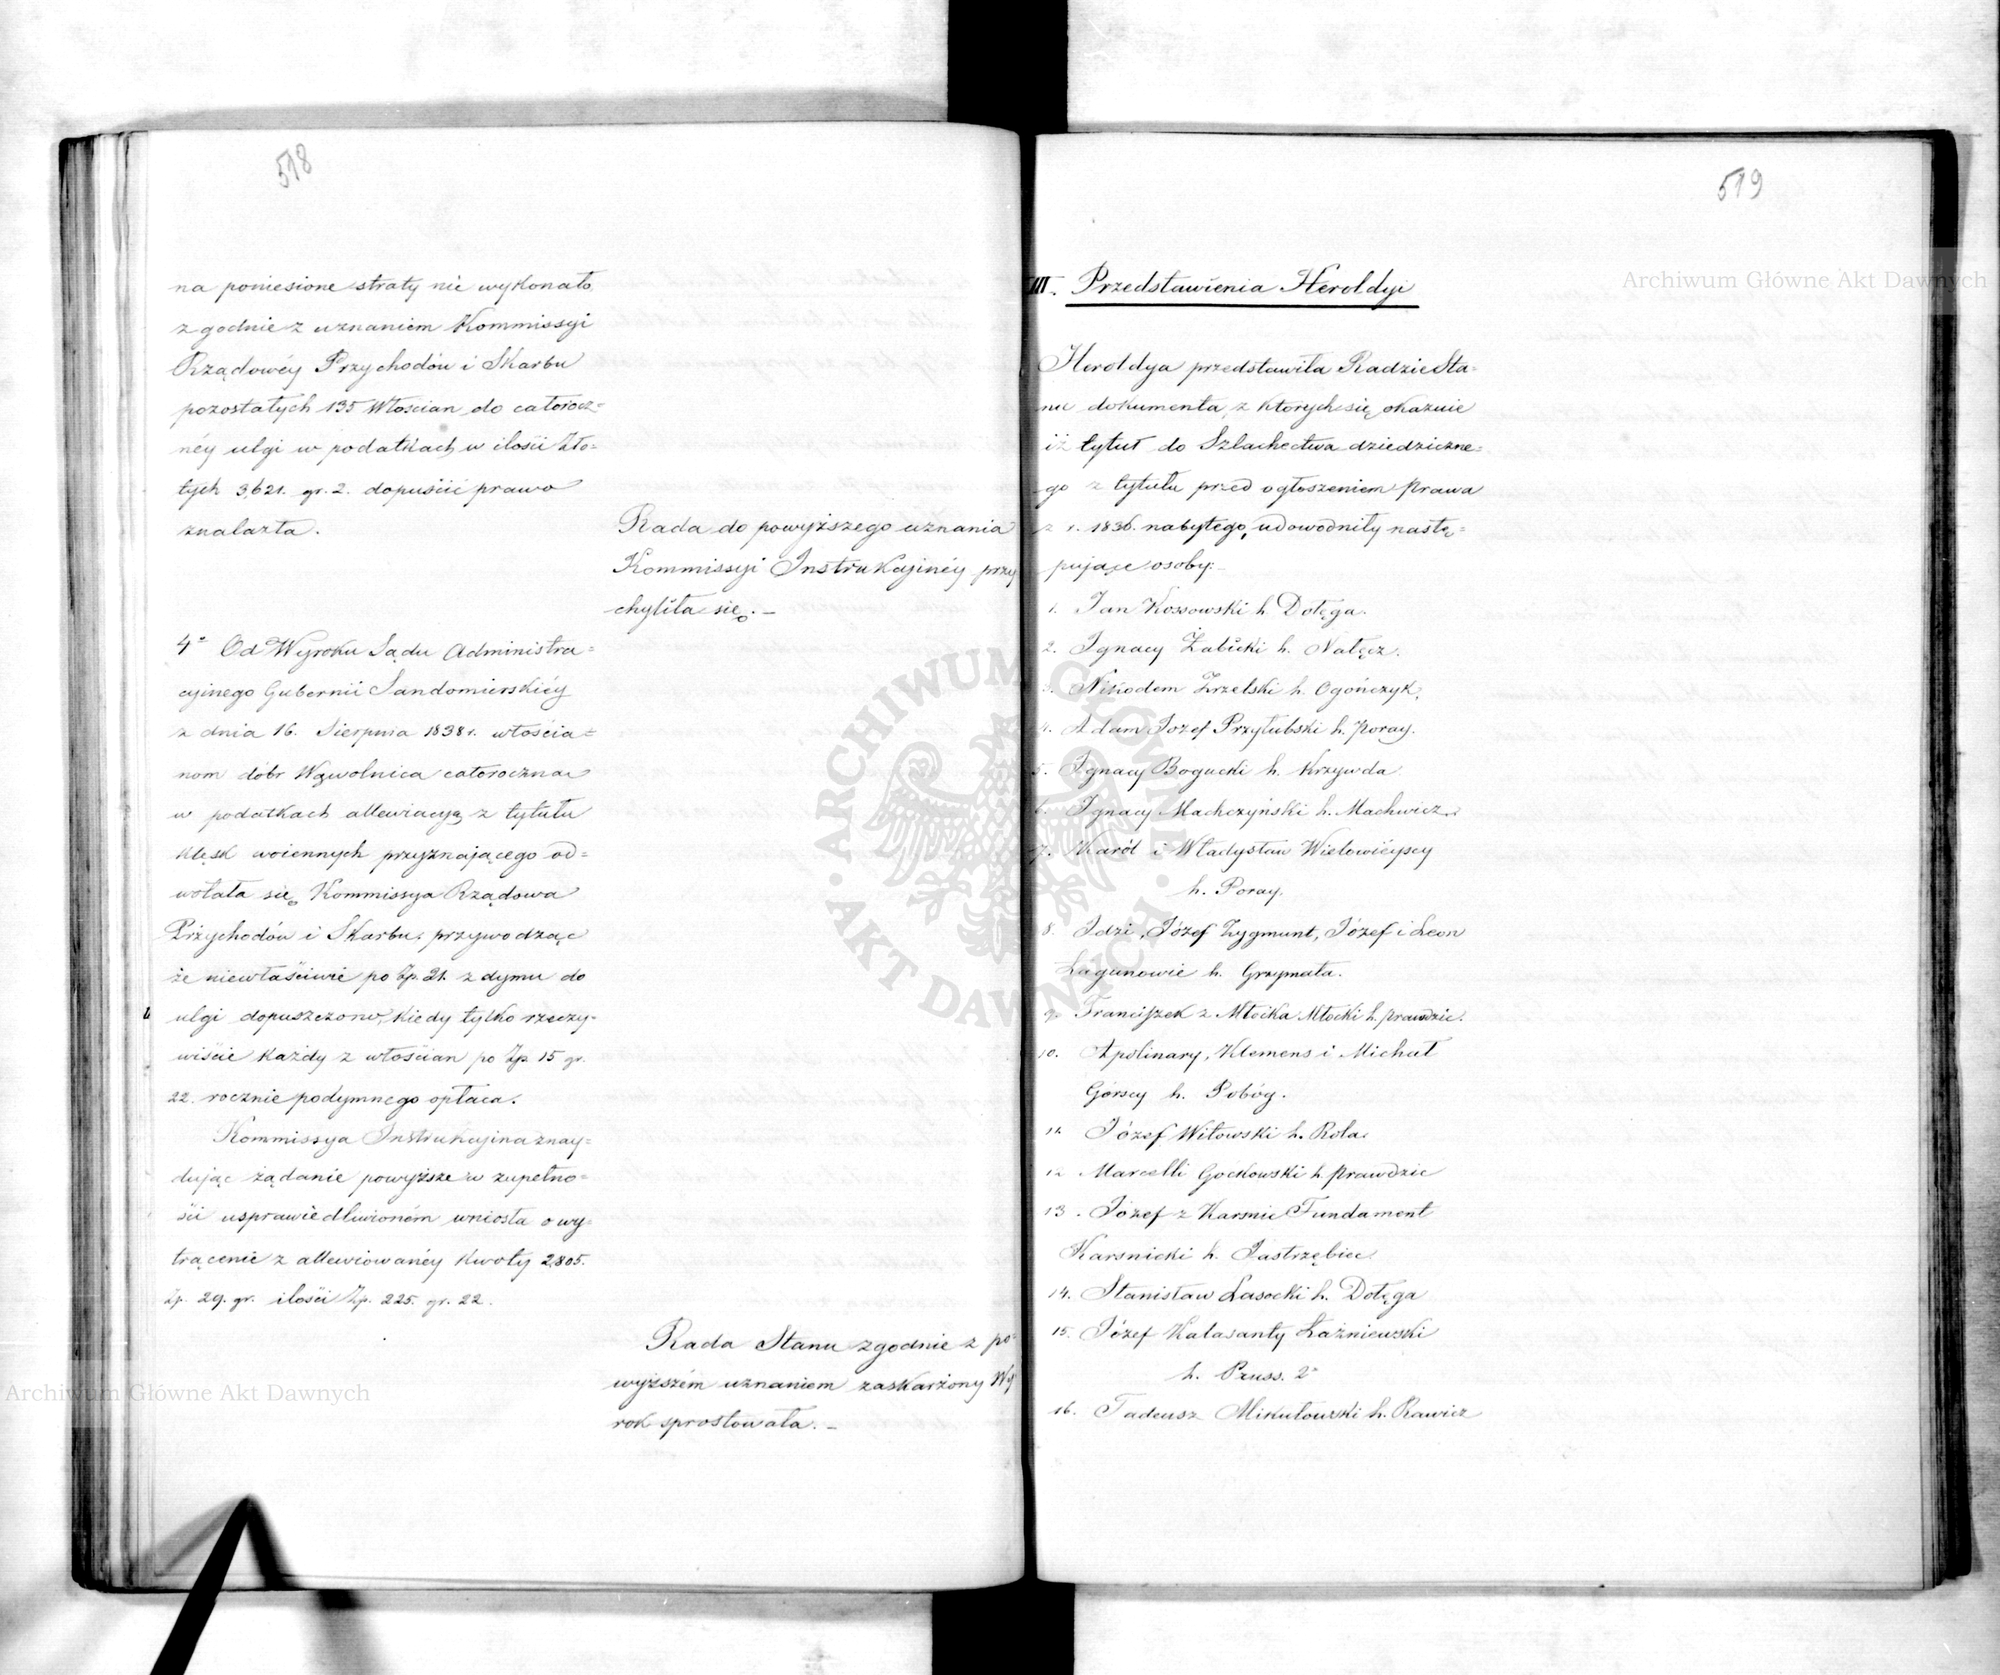 518
na poniesione straty nie wykonało,
zgodnie z uznaniem Kommissyi
Rządowéy Przychodów i Skarbu
pozostałych 135 Włoscian do całorocz=
néy ulgi w podatkach w ilosci Zło=
tych 3,621. gr. 2. dopuścić prawo
znalazła.
Rada do powyższego uznania
Kommissyi Instrukcjinéy przy
chyliła się. –
4° Od Wyroku Sądu Administra=
cyinego Gubernii Sandomierskiéy
z dnia 16. Sierpnia 1838 r. włościa=
nom dóbr Wąwolnica całoroczną
w podatkach allewiacyą z tytułu
klęsk woiennych przyznaiącego od=
wołała się Kommissya Rządowa
Przychodów i Skarbu, przywodząc
że niewłaściwie po Zp. 21. z dymu do
ulgi dopuszczono, kiedy tylko rzeczy-
wiście każdy z włościan po Zp. 15 gr.
22. rocznie podymnego opłaca.
Kommissya Instrukcjina znay=
dując żądanie powyższe w zupełno=
ści usprawiedliwioném wniosła o wy=
trącenie z allewiowanéy kwoty 2,805.
Zp. 29. gr. ilości Zp. 225. gr. 22.
Rada Stanu zgodnie z po=
wyższém uznaniem zaskarżony Wy
rok sprostowała. –
519
III. Przedstawienia Heroldyi
Heroldya przedstawiła Radzie Sta=
nu dokumenta, z ktorych się okazuie
iż tytuł do Szlachectwa dziedziczne=
go z tytułu przed ogłoszeniem Prawa
z r. 1836. nabytego, udowodniły nastę=
pujące osoby:
1. Jan Kossowski h. Dołęga.
2. Ignacy Żabicki h. Nałęcz.
3. Nikodem Zrzelski h. Ogończyk.
4. Adam Jozef Przyłubski h. Poray.
5. Ignacy Bogucki h. Krzywda
6. Ignacy Machczyński h. Machwicz.
7. Karól i Władysław Wielowieyscy
h. Poray.
8. Idzi, Józef Zygmunt, Józef i Leon
Łagunowie h. Grzymała.
9. Franciszek z Młocka Młocki h. Prawdzic.
10. Apolinary, Klemens i Michał
Górscy h. Pobóg.
11. Józef Witowski h. Rola.
12 Marcelli Goćkowski h. Prawdzic
13. Józef z Karsnic Fundament
Karsnicki h. Jastrzębiec
14. Stanisław Lasocki h. Dołęga
15. Józef Kalasanty Łaźniewski
h. Pruss. 2°
16. Tadeusz Mikułowski h. Rawicz
Archiwum Główne Akt Dawnych
Archiwum Główne Akt Dawnych
ARCHIWUM GŁÓWNE
· AKT DAWNYCH ·